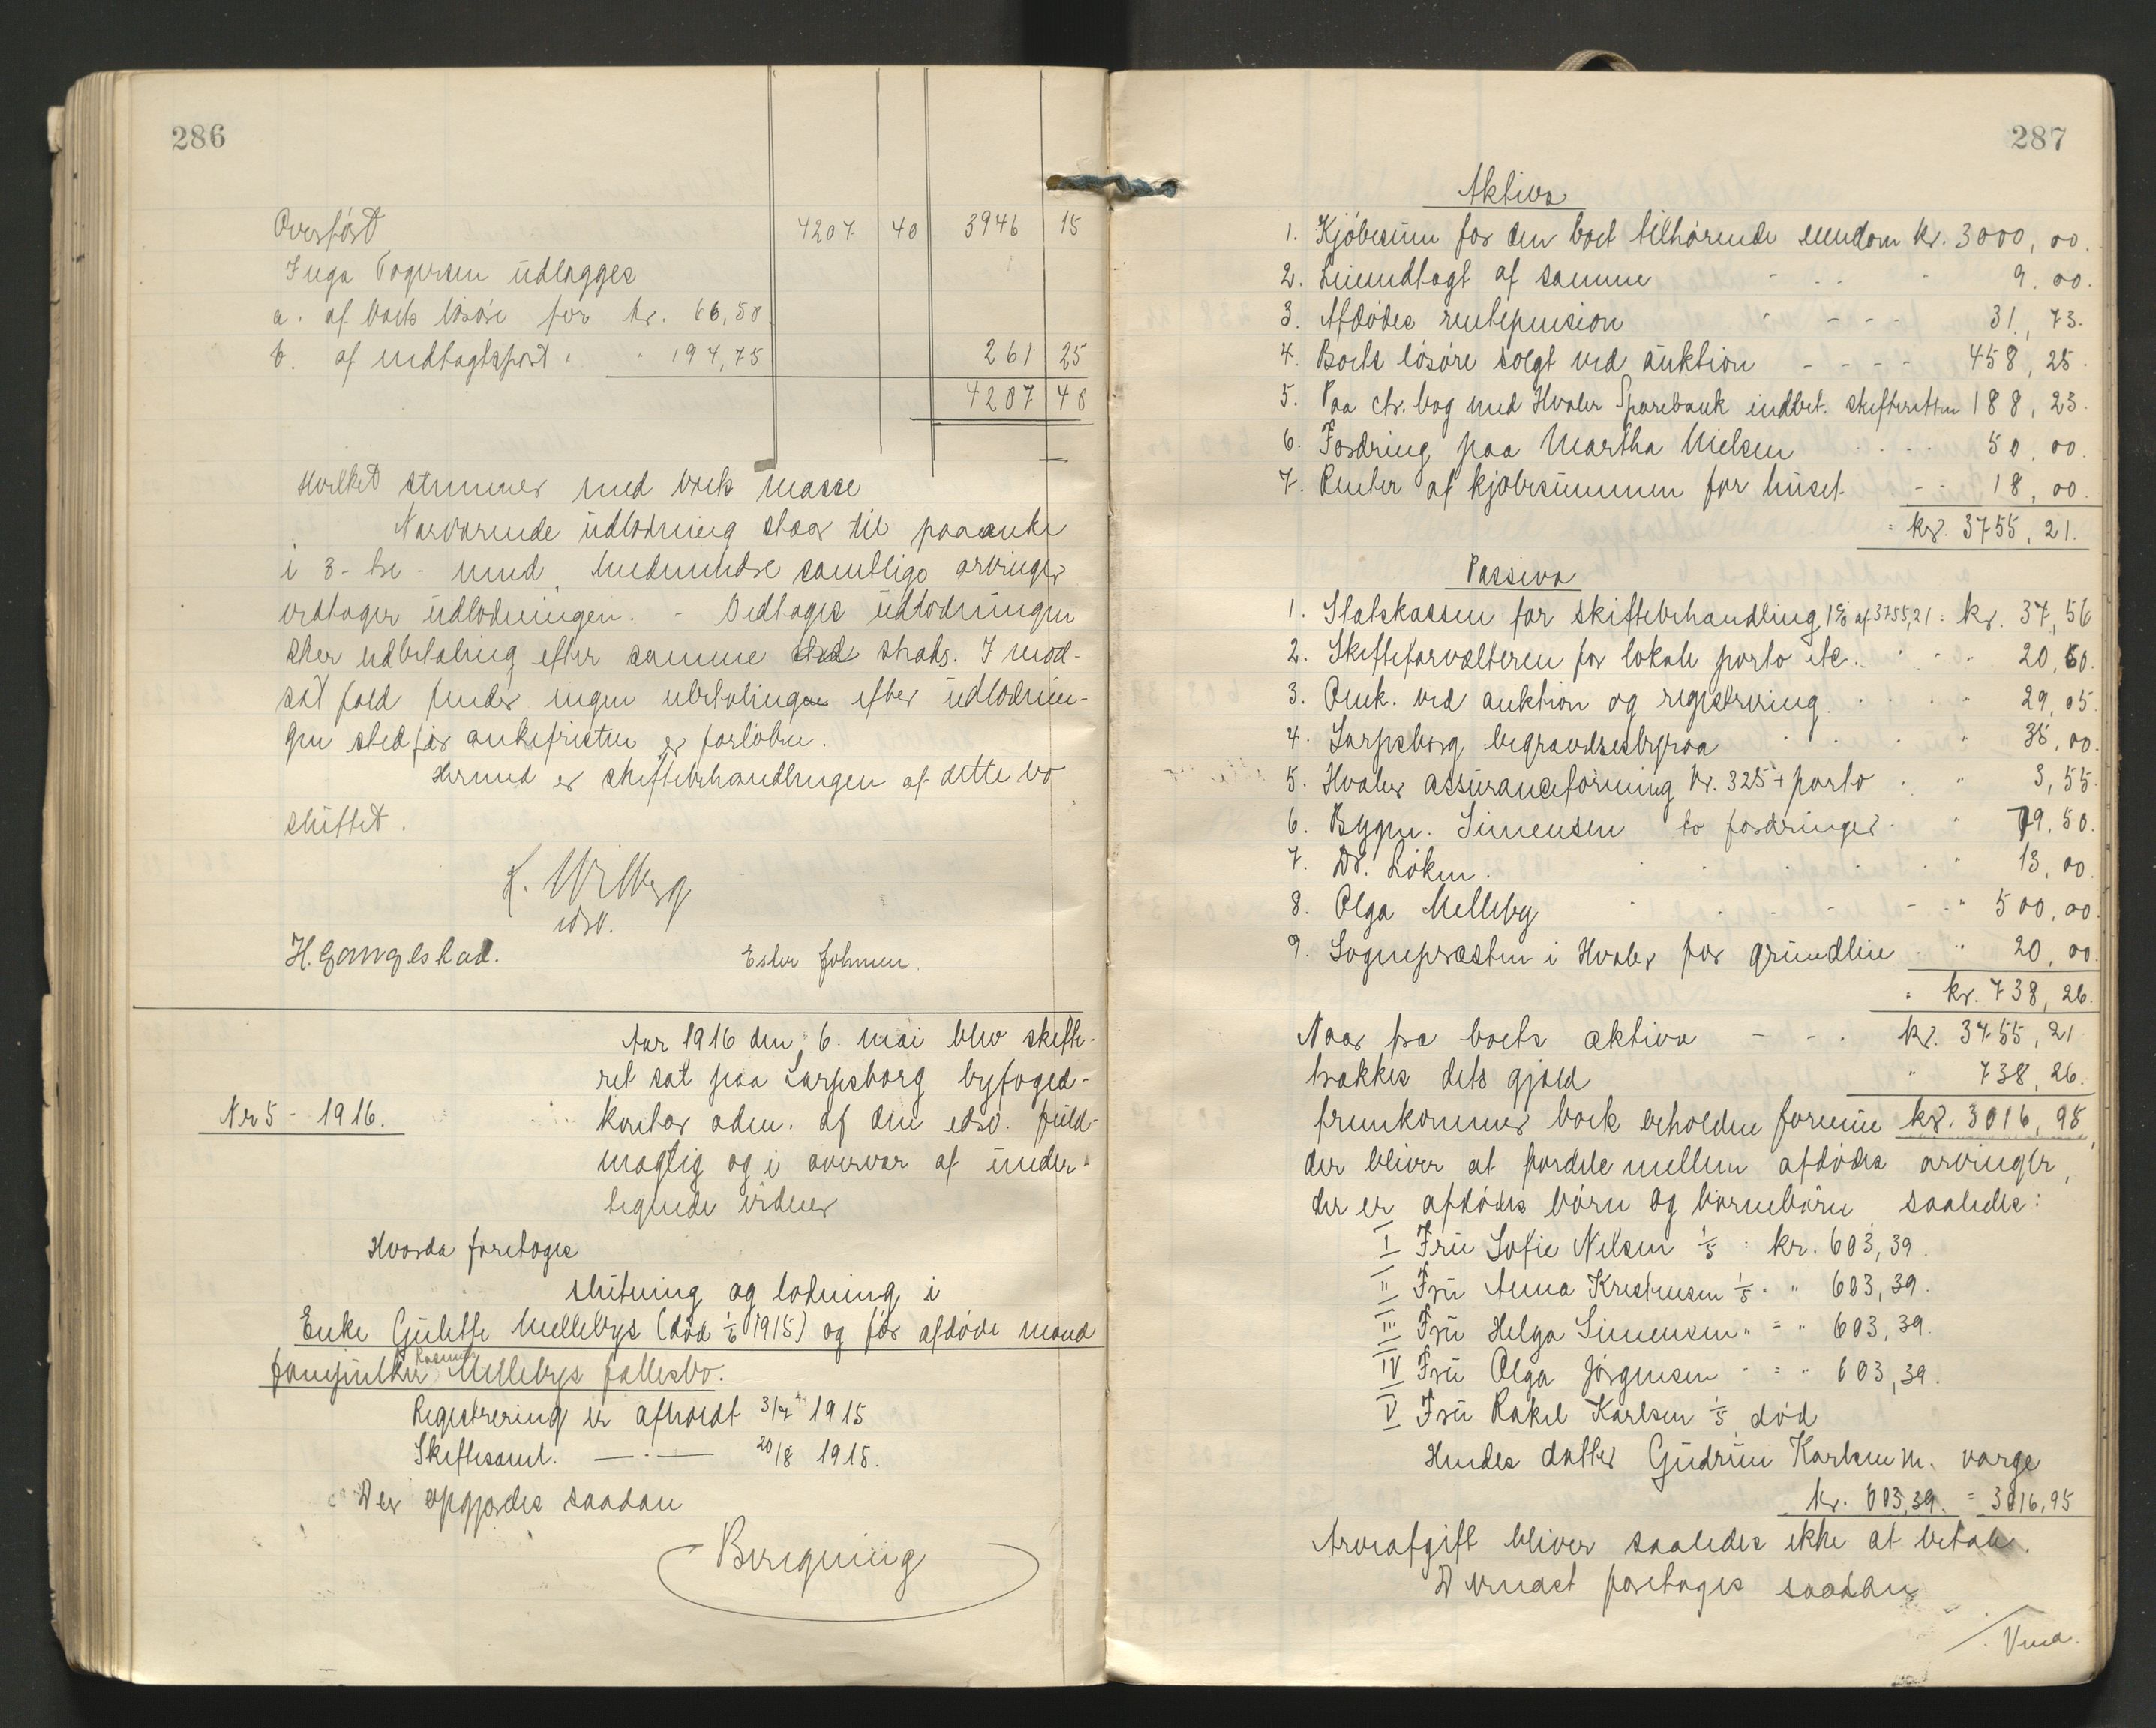 286
Overført 4207 40 3946 15
Inga Torgersen udlægges
a. af boets løsøre for kr. 66,50
b. af indtægtspost " " 194,75 261 25
4207 40
Hvilket stemmer med boets masse
Nærværende udlodning staar til paaanke
i 3-tre-mnd, medmindre samtlige arvinger
vedtager udlodningen. - Vedtages udlodningen
sker udbetaling efter samme straks. I mod-
sat fald finder ingen udbetaling efter udlodnin-
gen sted før ankefristen er forløben.
Hermed er skiftebehandlingen af dette bo
sluttet.
K. Wilberg
edsv.
H. Gangestad. Ester Johnsen.
Aar 1916 den 6. mai blev skifte-
ret sat paa Sarpsborg byfoged-
Nr 5 - 1916.
kontor adm. af den edsv. fuld-
mægtig og i overvær af under-
tegnede vidner
Hvorda foretoges
slutning og lodning i
Enke Gulette Mellebys (død 1/6 1915) og før afdøde mand
Rasmus
Mellebys fællesbo.
Registrering er afholdt 3/7 1915
Skiftesaml. —"— 20/8 1915.
Der opgjordes saadan
Beregning
287
Aktiva
1. Kjøbesum for den boet tilhørende eiendom kr. 3000,00.
2. Leieindtægt af samme " 9.00.
3. Afdødes rentepension " 31,73.
4. Boets løsøre solgt ved auktion - - - - 458,25.
5. Paa ctr. bog med Hvaler Sparebank indbet. skifteretten 188,23.
6. Fordring paa Martha Nielsen 50,00.
7. Renter af kjøbesummen for huset - - 18,00.
= kr. 3755,21.
Passiva
1. Statskassen for skiftebehandling 1% af 3755,21 = kr. 37,56
2. Skifteforvalteren for lokale porto etc. " 20,60.
3. Omk. ved auktion og registrering " 29,05.
4. Sarpsborg begravelsesbyraa " 35,00.
5. Hvaler assuranceforening kr. 325 + porto " 3,55.
6. Bygm. Simensen to fordringer " 79,50.
7. Dr. Løken. " 13,00.
8. Olga Melleby " 500,00.
9. Sognepræsten i Hvaler for grundleie " 20,00
= kr. 738,26.
Naar fra boets aktiva - - . kr. 3755,21
trækkes dets gjæld " 738,26.
fremkommer boets beholdne formue kr. 3016,95,
der bliver at fordele mellem afdødes arvinger,
der er afdødes børn og børnebørn saaledes:
I Fru Sofie Nilsen 1/5 = kr. 603,39.
II Fru Anna Kristensen 1/5 " " 603,39.
III Fru Helga Simensen " = " 603,39.
IV Fru Olga Jørgensen " = " 603,39.
V Fru Rakel Karlsen 1/5 død
Hendes datter Gudrun Karlsen m. værge
kr. 603,39. = 3016,95
Arveafgift bliver saaledes ikke at betale.
Dernæst foretoges saadan